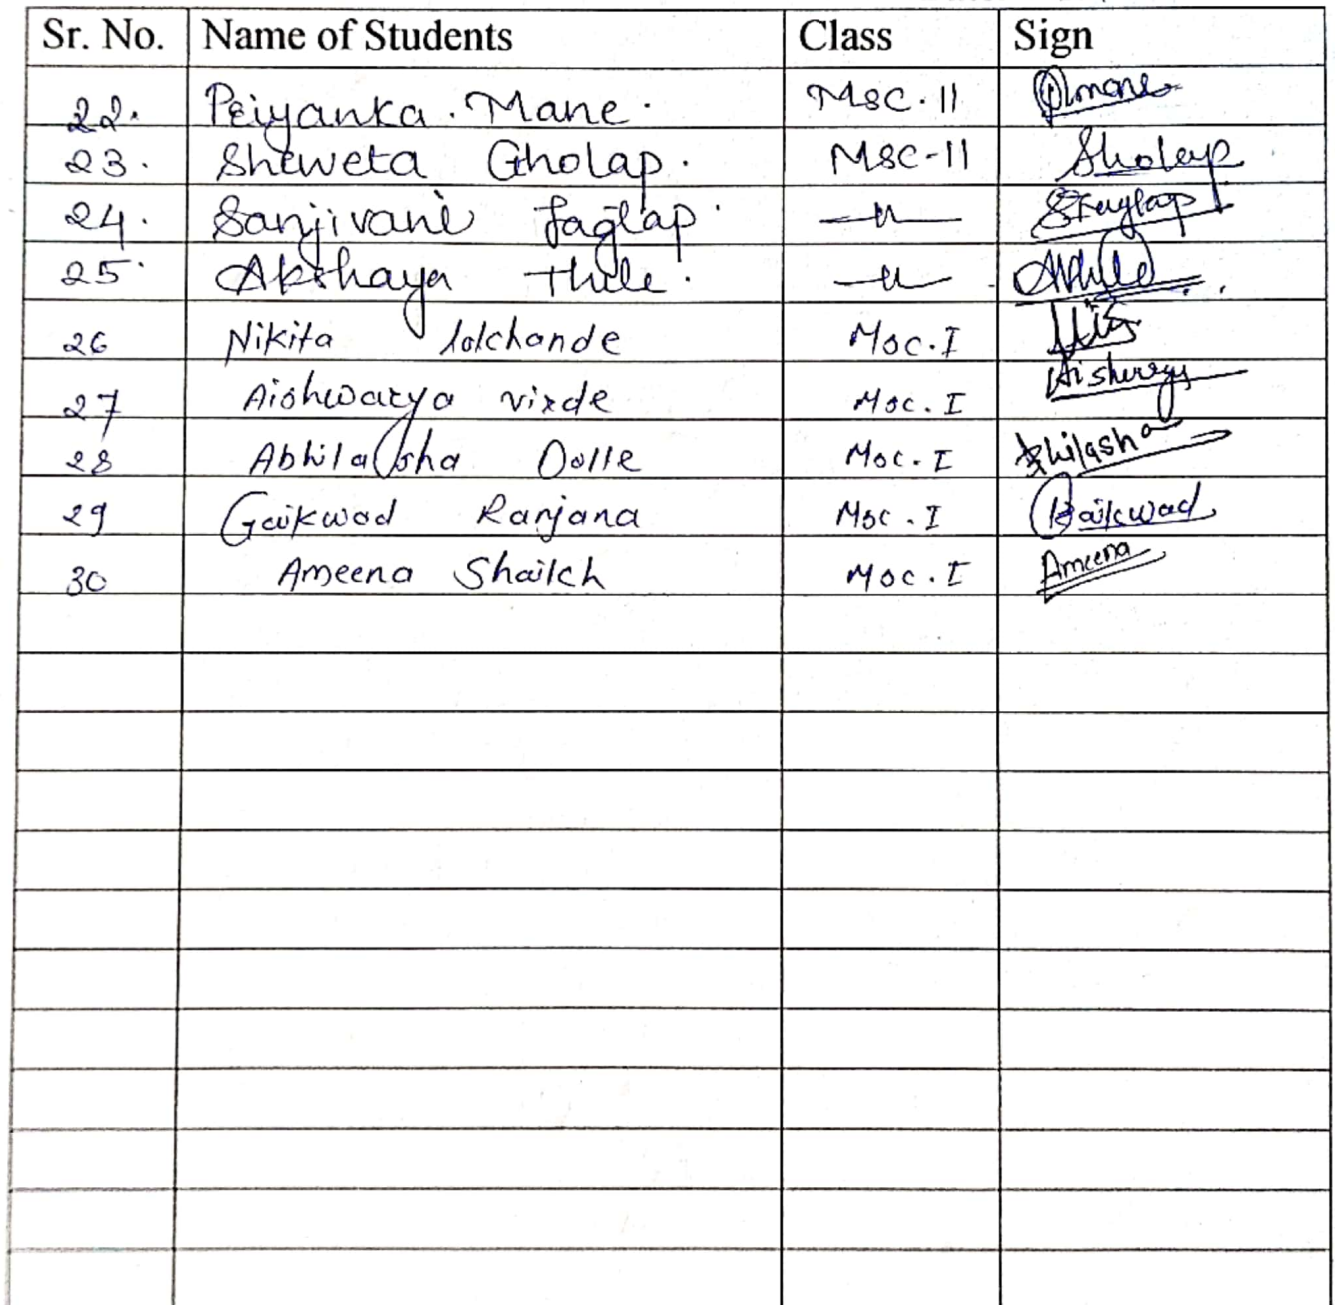 Sr. No. Name of Students Class Sign
22. Priyanka. Mane. MSC-II PMane
23. Shweta Gholap. MSC-II Gholap
24. Sanjivani Jagtap. —"— SJagtap
25. Akshaya Thile. —"— AThile
26 Nikita lalchande Msc.I
27 Aishwarya virde Msc.I Aishwarya
28 Abhilasha Dolle Msc.I Abhilasha
29 Gaikwad Ranjana Msc.I Gaikwad
30 Ameena Shaikh Msc.I Ameena